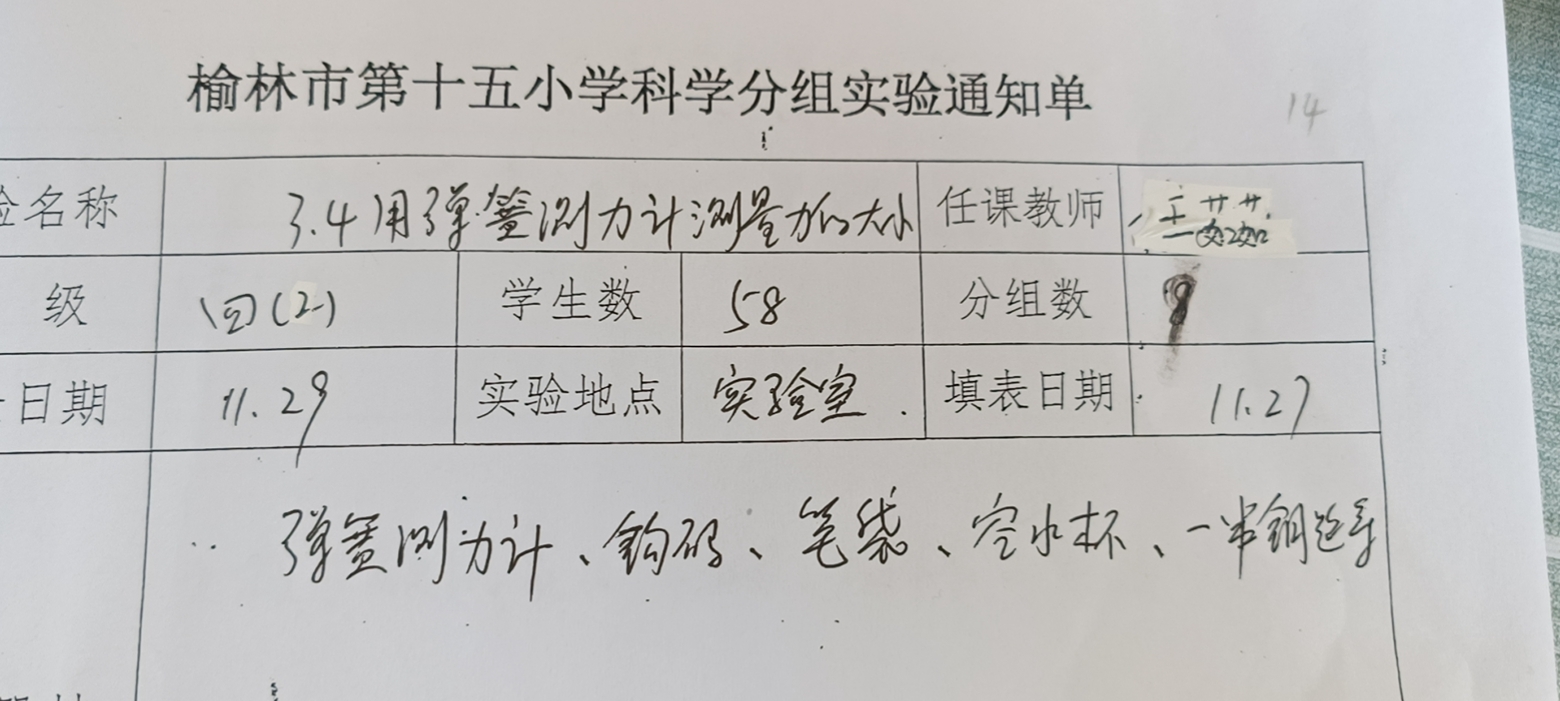 榆林市第十五小学科学分组实验通知单
14
验名称 3.4用弹簧测力计测量力的大小 任课教师 王茹茹
级 四(2) 学生数 58 分组数
日期 11.29 实验地点 实验室. 填表日期 11.27
弹簧测力计、钩码、笔袋、空水杯、一串钥匙等